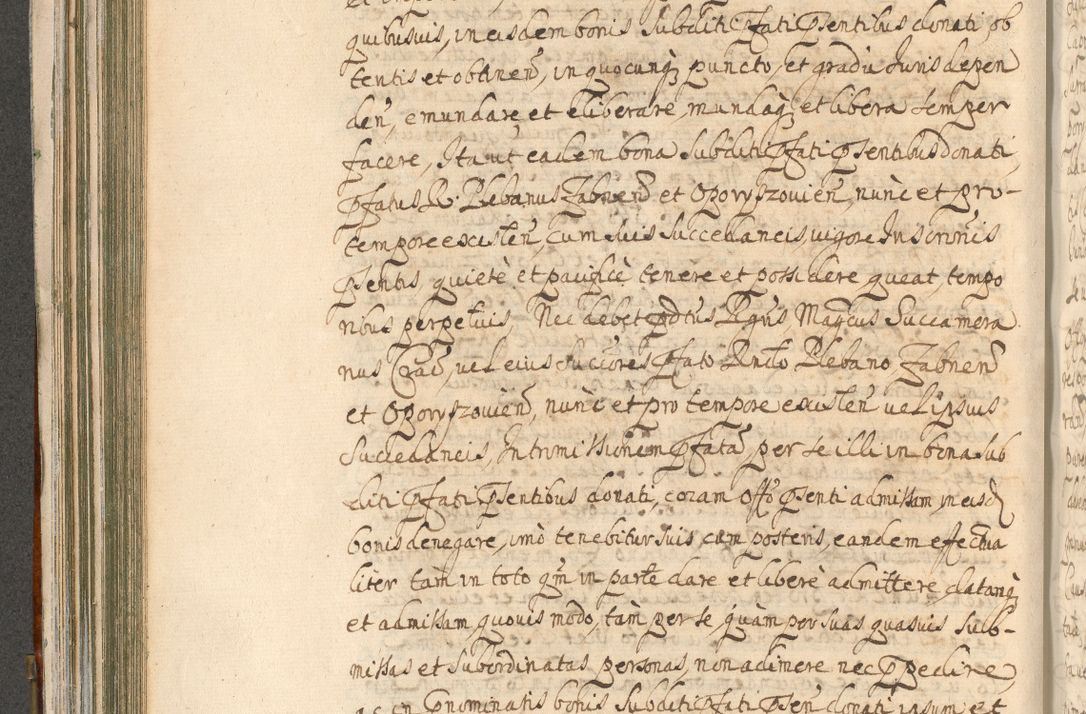 quibusuis, in eisdem bonis Subditi Pfati Psentibus donati ob
tentis et obtinen, in quocunq puncto, et gradu Iuris depen
den, emundare, et eliberare, mundaq et libera semper
facere, Ita ut eadem bona Subditi pfati psentibus donati,
pfatus R. Plebanus Zabnen et Oporyszouien, nunc et pro-
tempore existen, cum suis Succedaneis, uigore Inscrinis
psentis, quietè et pacificè tenere et possidere queat, tempo
ribus perpetuis, Nec debet pdtus Rgnis, Magcus Succamera
nus Crac, uel eius succores pfato Rndo Plebano Zabnen
et Oporyszouien, nunc et pro tempore existen uel ipsius
Succedaneis, Intromissionem pfata, per se illi in bona sub
diti pfati psentibus donati, coram Offo psenti admissam, in eisd
bonis denegare, imò tenebitur suis, cum posteris, eandem effectua
liter tam in toto qm in parte dare et liberè admittere, datamq
et admissam, quouis modo, tàm per se, quàm per suas quasuis sub-
missas et subordinatas personas non adimere nec ppedire,
ac in pnominatis bonis Subditi pfati psen donati ipsum et